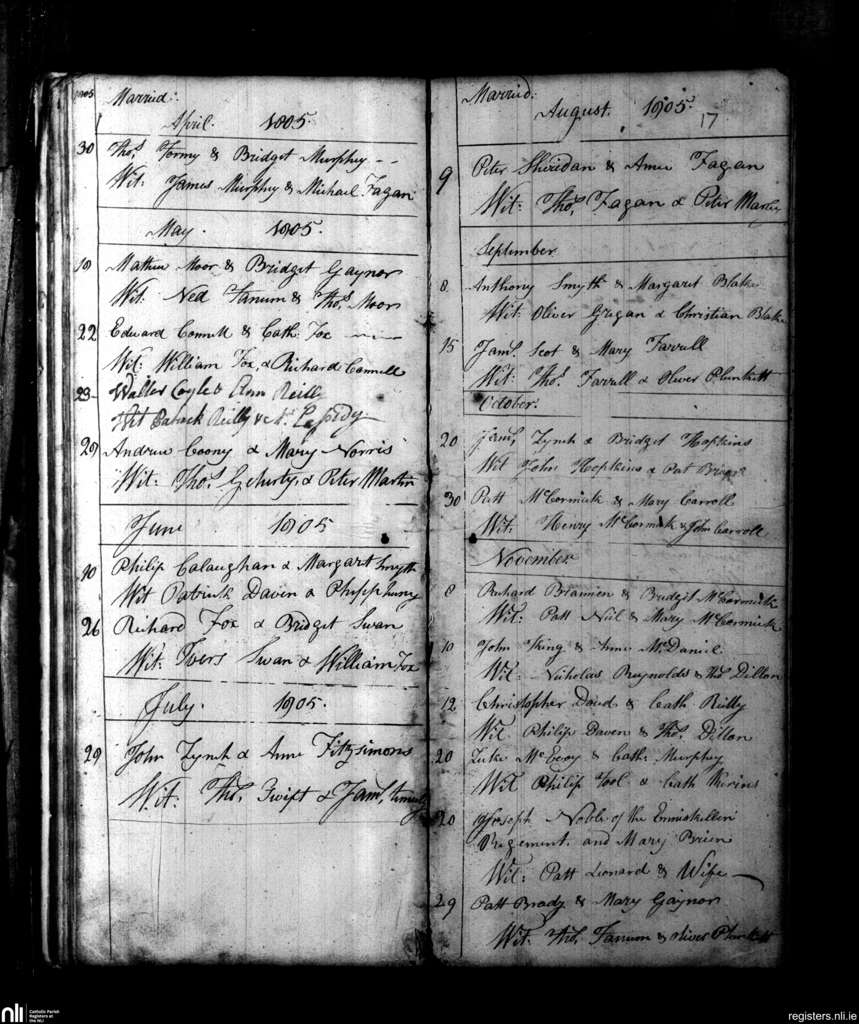 1805
Married:
April. 1805.
30 Thos. Tormy & Bridget Murphy - -
Wit: James Murphy & Michael Fagan
May. 1805.
19 Mathew Moor & Bridget Gaynor
Wit: Ned Fanum & Thos. Moor
22 Edward Connell & Cath: Fox
Wit: William Fox, & Richard Connell
23 Walter Coyle & Ann Reilly
Wit Patrick Reilly &
29 Andrew Coony & Mary Norris
Wit: Thos. & Peter Martin
June 1805
10 Philip Calaughan & Margaret Smyth
Wit Patrick Daven &
26 Richard Fox & Bridget Swan
Wit: Ivers Swan & William Fox
July. 1805.
29 John Lynch & Anne Fitzsimons
Wit: Thos. Swift & Jams.
Married:
August. 1805.
17
9 Peter Sheridan & Anne Fagan
Wit: Thos. Fagan & Peter
September
8 Anthony Smyth & Margaret Blake
Wit: Oliver Gragan & Christian Blake
15 Jams. Scot & Mary Farrell
Wit: Thos. Farrell & Oliver Plunkett
October.
20 Jams. Lynch & Bridget Hopkins
Wit John Hopkins & Pat
30 Patt McCormick & Mary Carroll
Wit: Henry McCormick & John Carroll
November
8 Richard & Bridget McCormick
Wit: Patt Neil & Mary McCormick
10 John King & Anne McDaniel
Wit: Nicholas Reynolds & Thos Dillon
12 Christopher Daud & Cath Reilly
Wit Philip Daven & Thos. Dillon
20 Luke McEvoy & Cath: Murphy
Wit Philip Tool & Cath
20 Joseph Noble of the Enniskillen
Regement. and Mary Brien
Wit: Patt Leonard & Wife
29 Patt Brady & Mary Gaynor
Wit: Thos. Fanum & Oliver Plunkett
nli Catholic Parish
Registers at
the NLI
registers.nli.ie